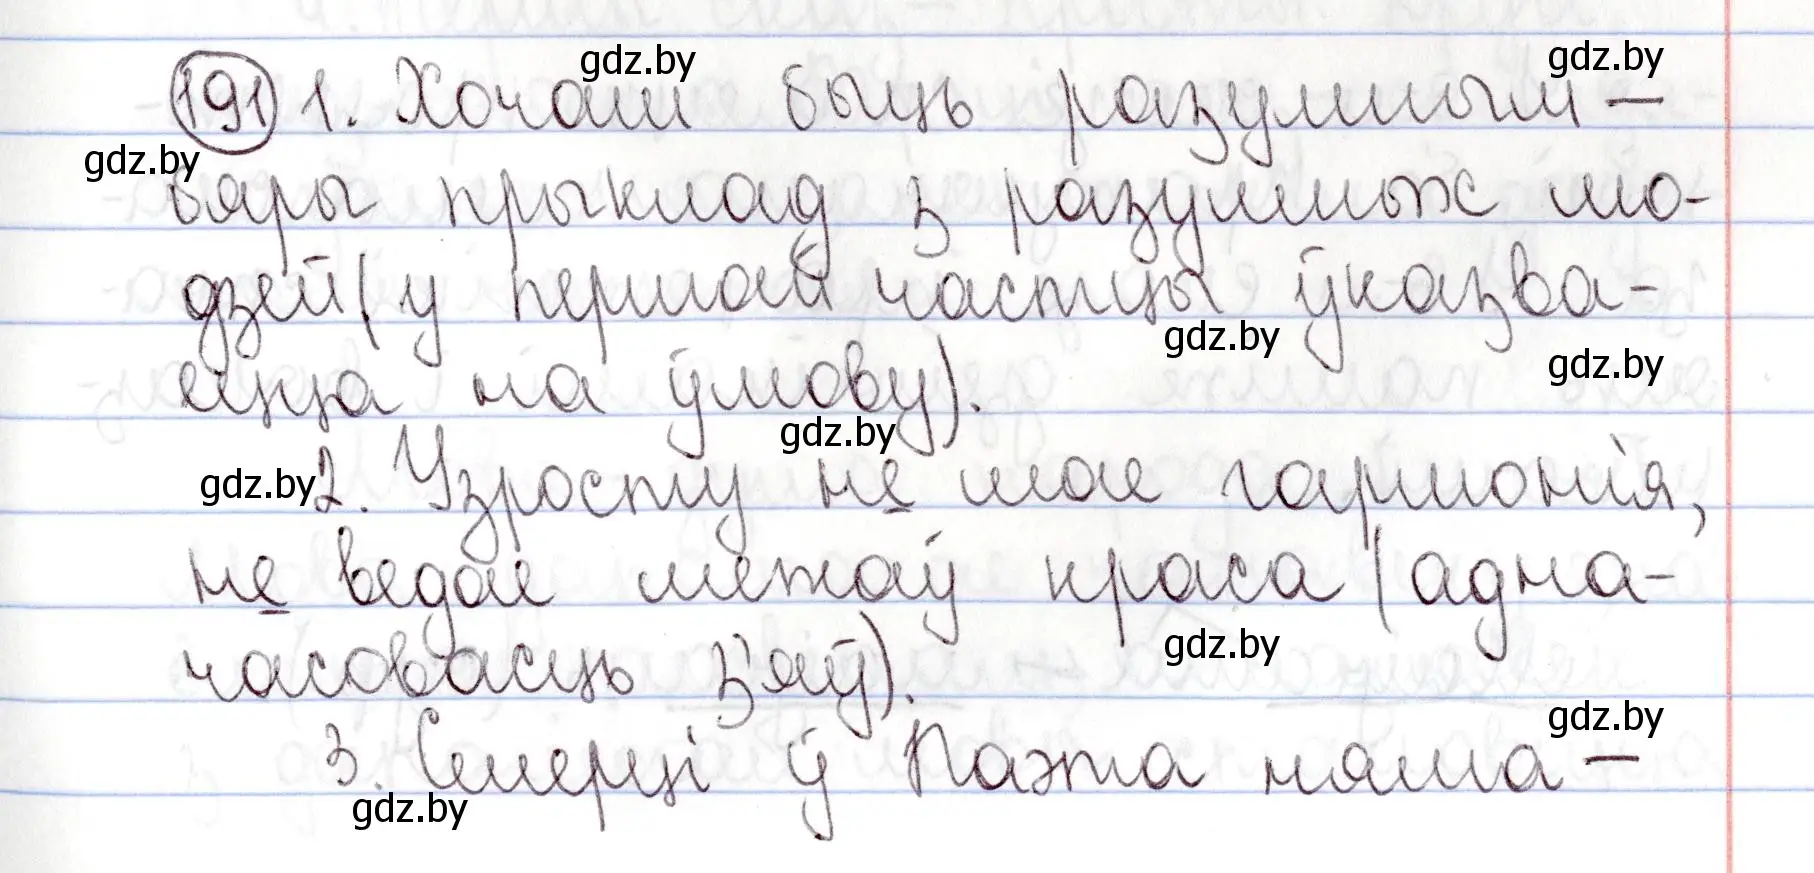 191 1. Хочаш быць разумным –
бяры прыклад з разумных лю-
дзей (у першай частцы ўказва-
ецца на ўмову).
2. Узросту не мае гармонія,
не ведае межаў краса (адна-
часовасць з'яў).
3. Смерці ў Паэта няма –
gdz.by
gdz.by
gdz.by
gdz.by
gdz.by
gdz.by
gdz.by
gdz.by
gdz.by
gdz.by